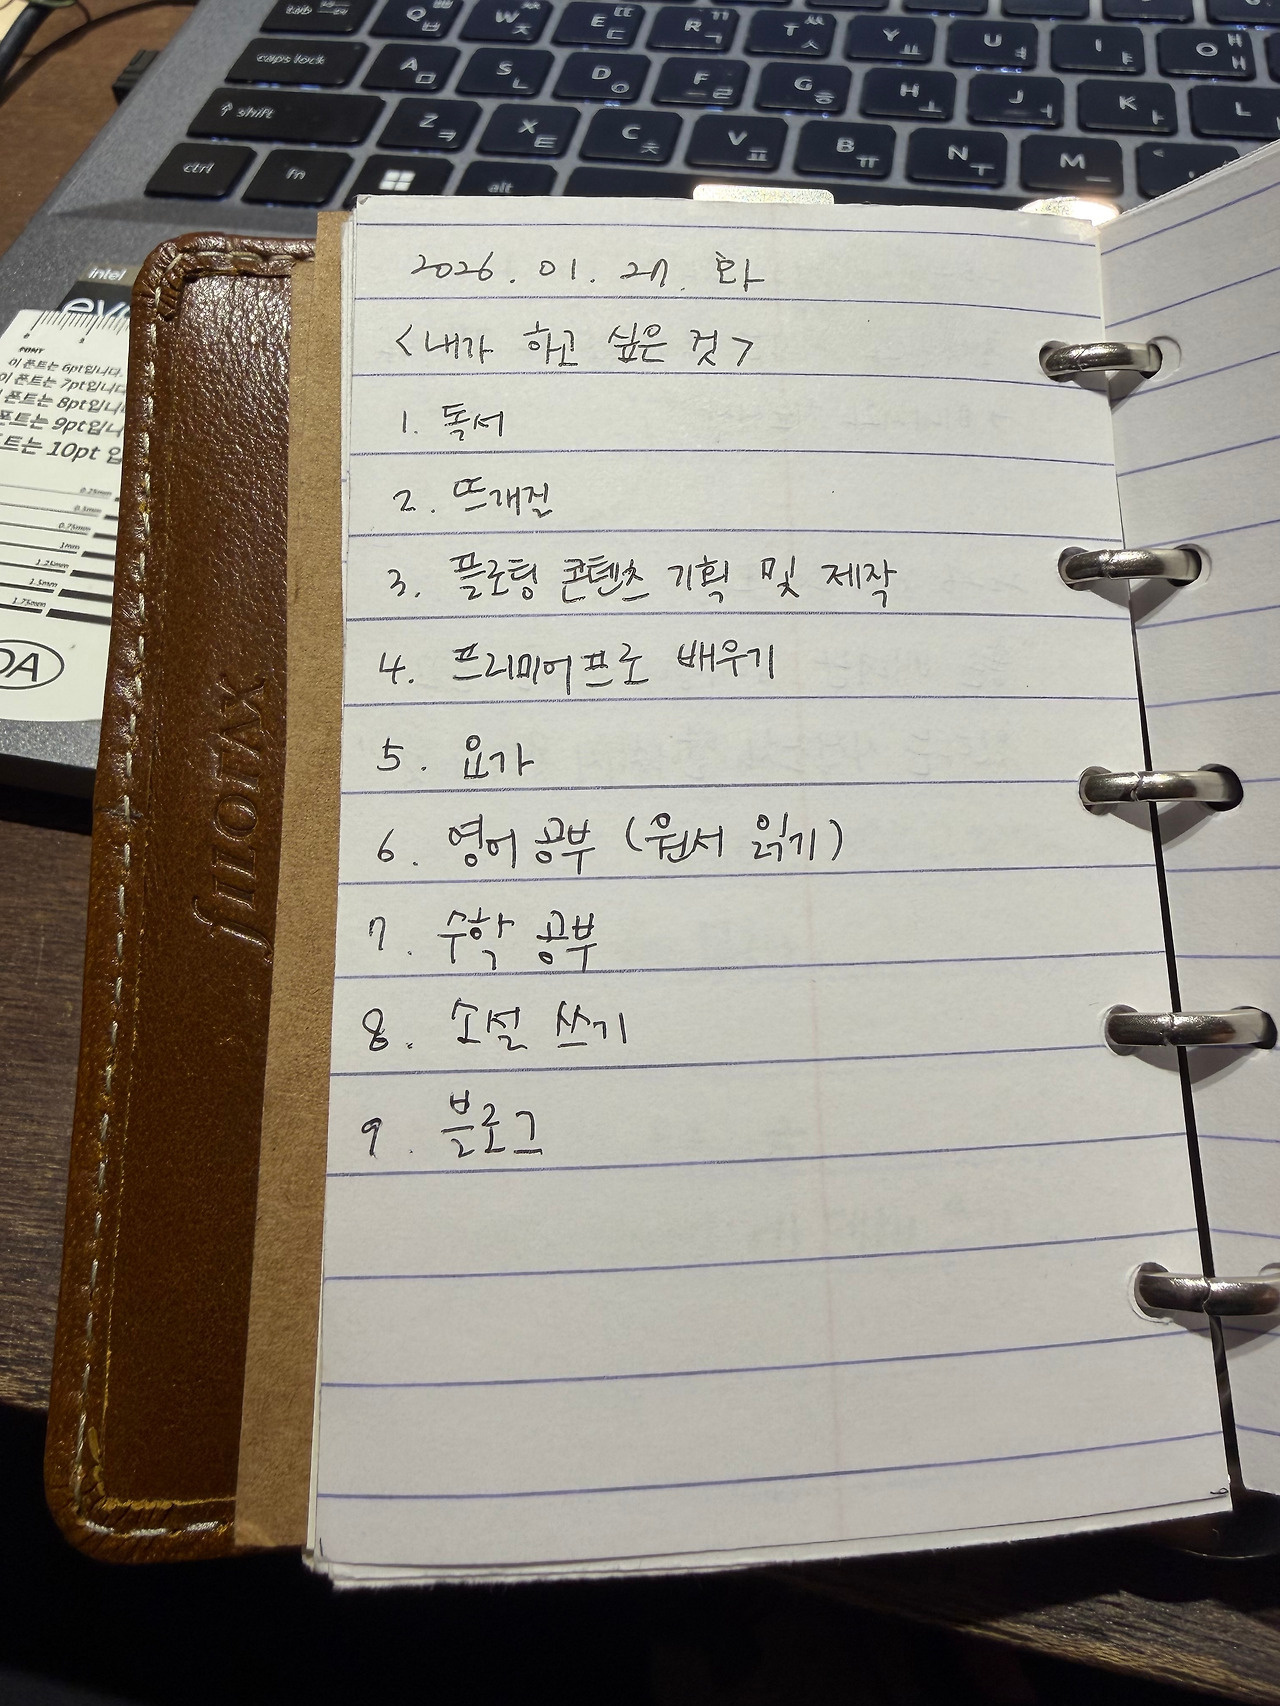 tab
Q ㅂ W ㅈ E ㄸ ㄷ R ㄲ ㄱ T ㅆ ㅅ Y ㅛ U ㅕ I ㅑ O ㅒ ㅐ
caps lock A ㅁ S ㄴ D ㅇ F ㄹ G ㅎ H ㅗ J ㅓ K ㅏ L
↑ shift Z ㅋ X ㅌ C ㅊ V ㅍ B ㅠ N ㅜ M ㅡ <
ctrl fn alt
intel
evo
FONT
이 폰트는 6pt입니다.
이 폰트는 7pt입니다.
폰트는 8pt입니
폰트는 9pt입니
트는 10pt 입
0.25mm
0.5mm
0.75mm
1mm
1.25mm
1.5mm
1.75mm
OA
fIIOTTA
2026. 01. 27. 화
<내가 하고 싶은 것>
1. 독서
2. 뜨개질
3. 플로팅 콘텐츠 기획 및 제작
4. 프리미어프로 배우기
5. 요가
6. 영어 공부 (원서 읽기)
7. 수학 공부
8. 소설 쓰기
9. 블로그